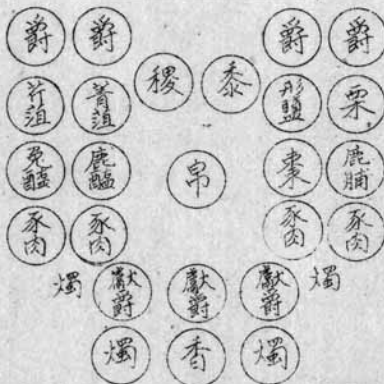 爵 爵 爵 爵
稷 黍
芹菹 菁菹 形鹽 栗
兔醢 鹿醢 帛 棗 鹿脯
豕肉 豕肉 豕肉 豕肉
燭 獻爵 獻爵 獻爵 燭
燭 香 燭